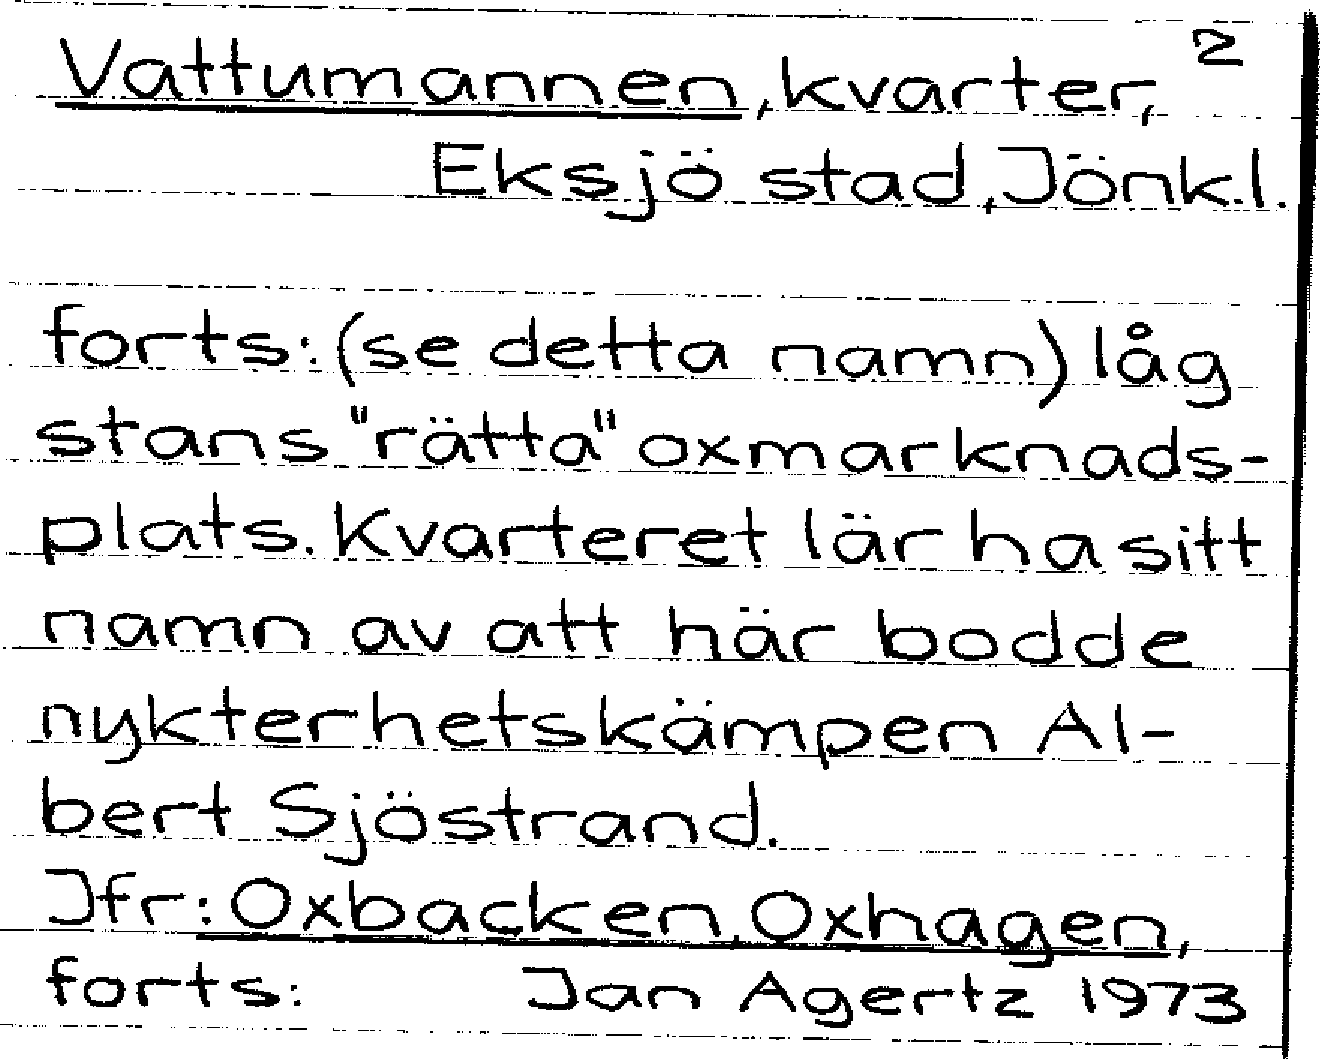 Vattumannen, kvarter, 2
Eksjö stad, Jönk.l.
forts: (se detta namn) låg
stans "rätta" oxmarknads-
plats. Kvarteret lär ha sitt
namn av att här bodde
nykterhetskämpen Al-
bert Sjöstrand.
Jfr: Oxbacken, Oxhagen,
forts: Jan Agertz 1973